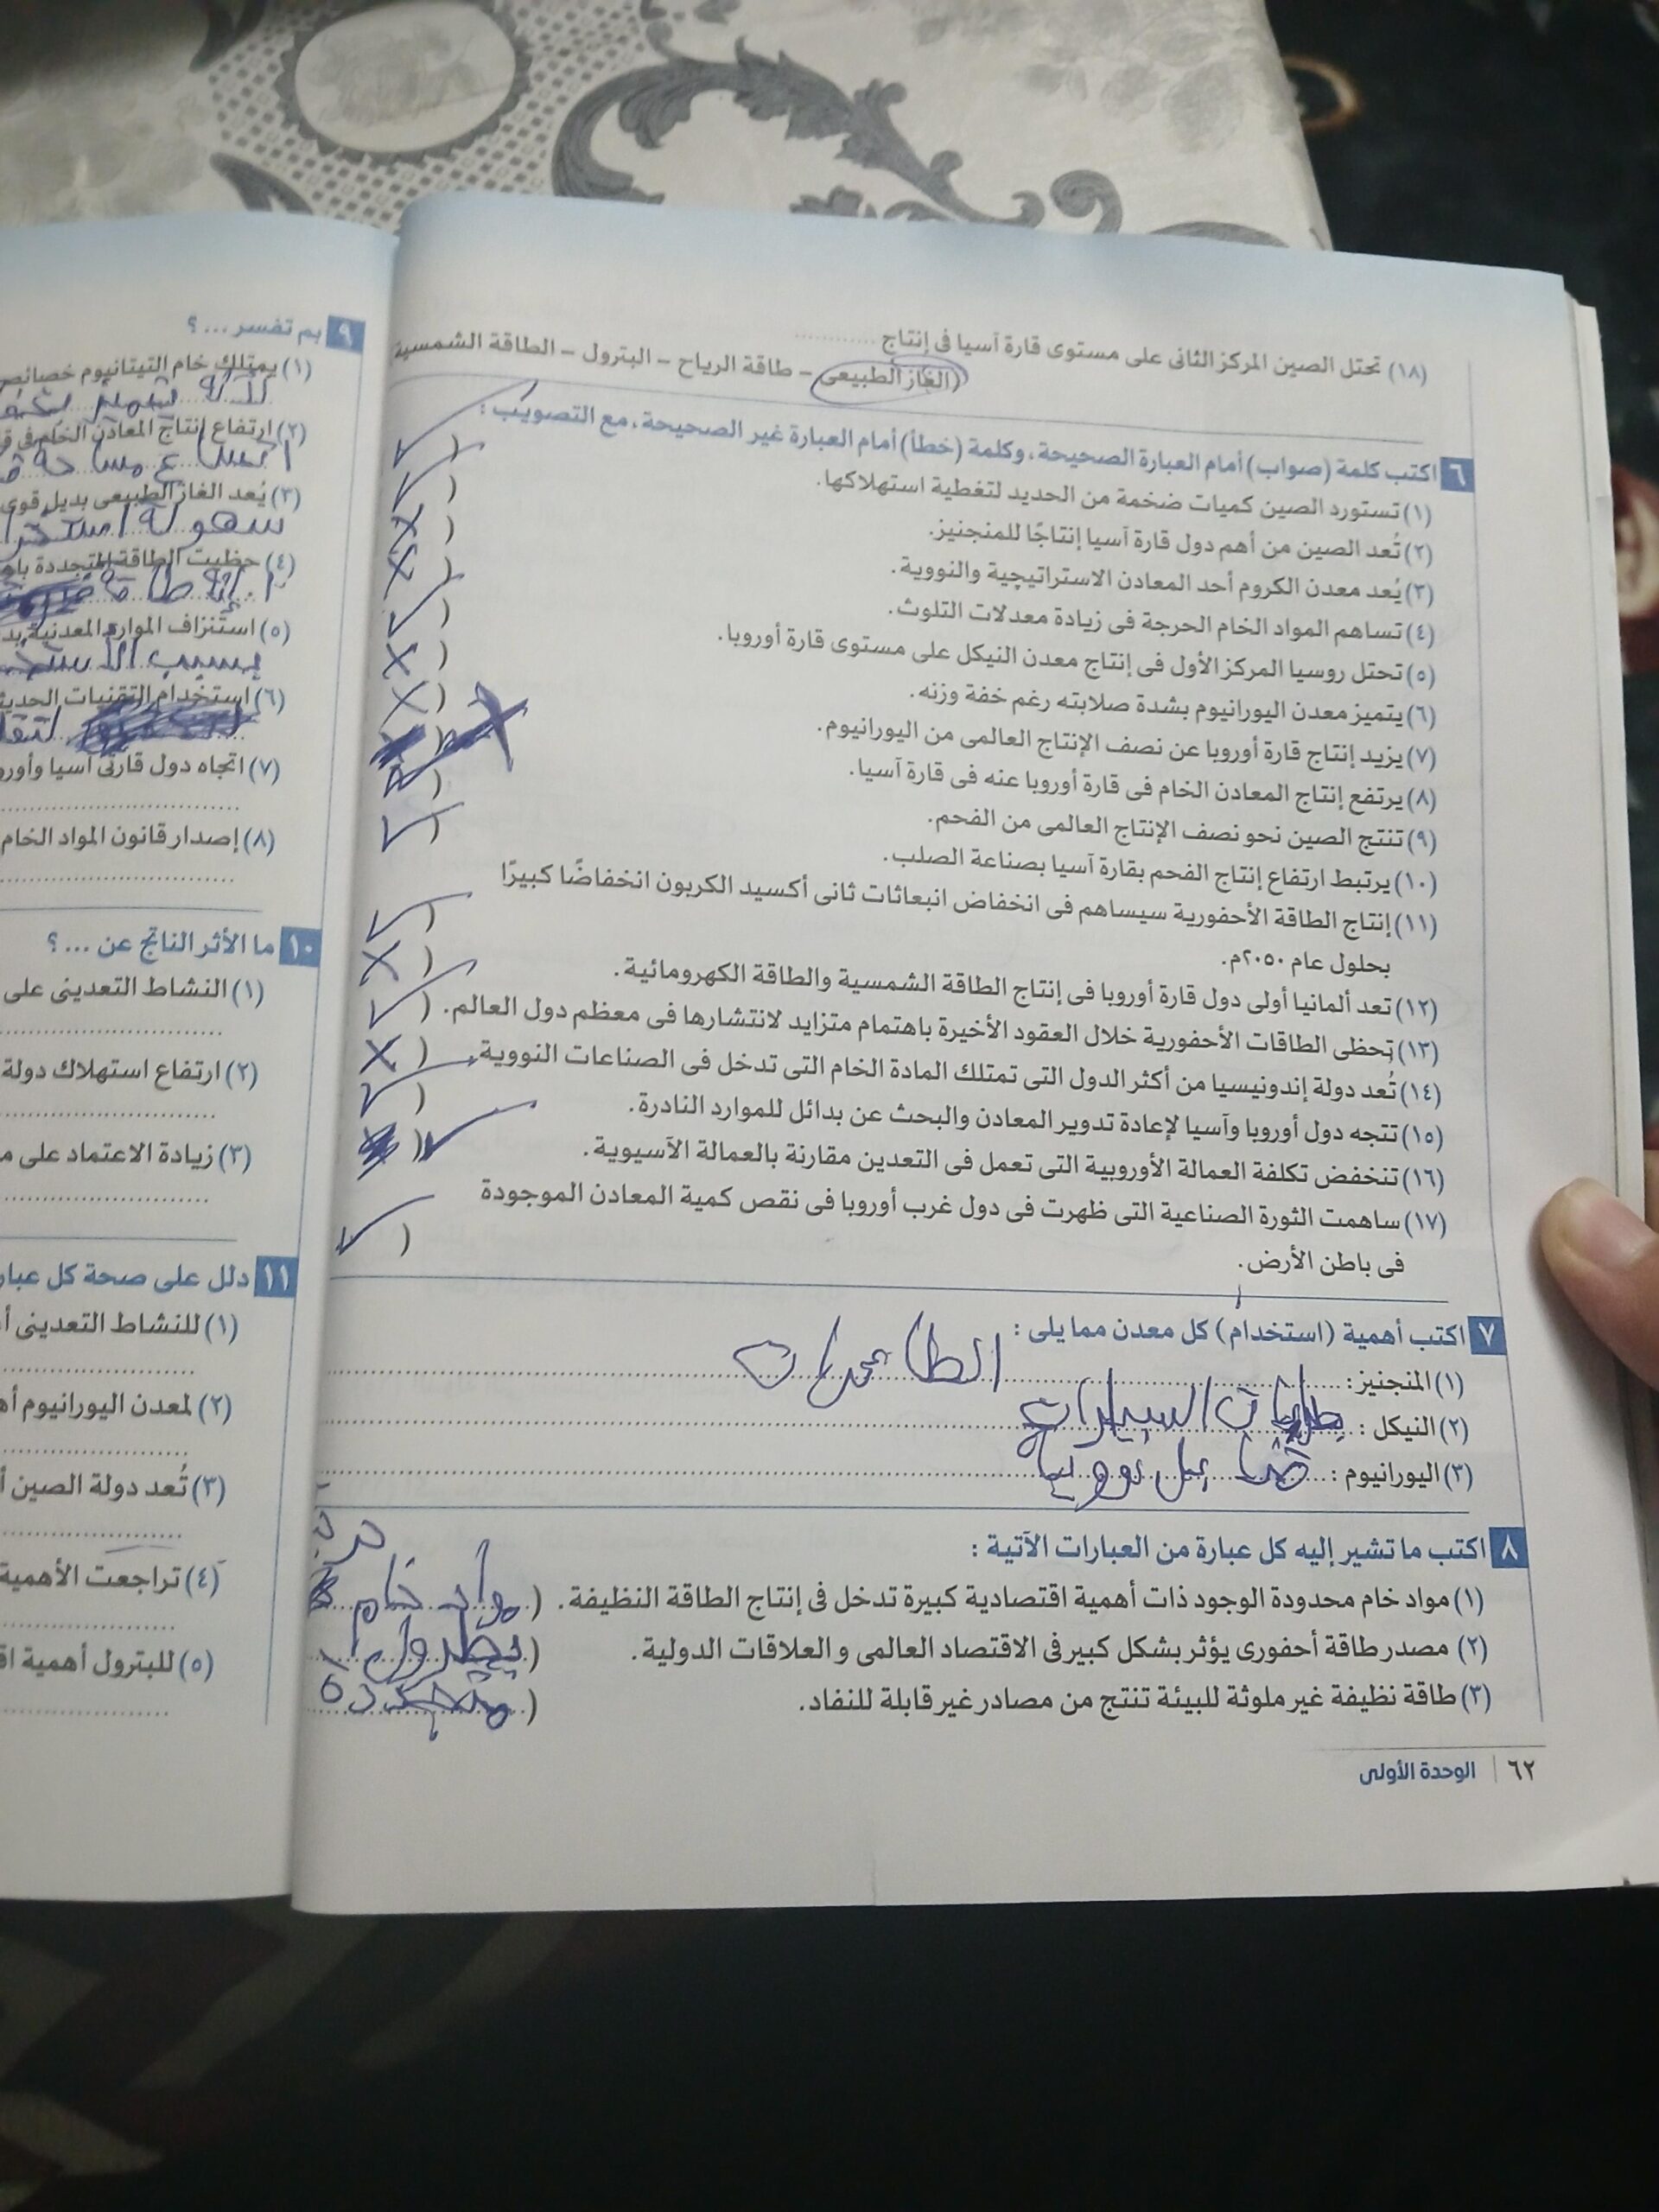 (١٨) تحتل الصين المركز الثانى على مستوى قارة آسيا فى إنتاج ............
(الغاز الطبيعى – طاقة الرياح – البترول – الطاقة الشمسية
٦ اكتب كلمة (صواب) أمام العبارة الصحيحة، وكلمة (خطأ) أمام العبارة غير الصحيحة، مع التصويب :
(١) تستورد الصين كميات ضخمة من الحديد لتغطية استهلاكها. ( ✓
(٢) تُعد الصين من أهم دول قارة آسيا إنتاجًا للمنجنيز. ( ✓
(٣) يُعد معدن الكروم أحد المعادن الاستراتيچية والنووية. ( ✗
(٤) تساهم المواد الخام الحرجة فى زيادة معدلات التلوث. ( ✗
(٥) تحتل روسيا المركز الأول فى إنتاج معدن النيكل على مستوى قارة أوروبا. ( ✓
(٦) يتميز معدن اليورانيوم بشدة صلابته رغم خفة وزنه. ( ✗
(٧) يزيد إنتاج قارة أوروبا عن نصف الإنتاج العالمى من اليورانيوم. ( ✗
(٨) يرتفع إنتاج المعادن الخام فى قارة أوروبا عنه فى قارة آسيا. ( ✗
(٩) تنتج الصين نحو نصف الإنتاج العالمى من الفحم. ( ✓
(١٠) يرتبط ارتفاع إنتاج الفحم بقارة آسيا بصناعة الصلب. ( ✓
(١١) إنتاج الطاقة الأحفورية سيساهم فى انخفاض انبعاثات ثانى أكسيد الكربون انخفاضًا كبيرًا
بحلول عام ٢٠٥٠م. ( ✓
(١٢) تعد ألمانيا أولى دول قارة أوروبا فى إنتاج الطاقة الشمسية والطاقة الكهرومائية. ( ✗
(١٣) تحظى الطاقات الأحفورية خلال العقود الأخيرة باهتمام متزايد لانتشارها فى معظم دول العالم. ( ✓
(١٤) تُعد دولة إندونيسيا من أكثر الدول التى تمتلك المادة الخام التى تدخل فى الصناعات النووية. ( ✗
(١٥) تتجه دول أوروبا وآسيا لإعادة تدوير المعادن والبحث عن بدائل للموارد النادرة. ( ✓
(١٦) تنخفض تكلفة العمالة الأوروبية التى تعمل فى التعدين مقارنة بالعمالة الآسيوية. ( ✓
(١٧) ساهمت الثورة الصناعية التى ظهرت فى دول غرب أوروبا فى نقص كمية المعادن الموجودة
فى باطن الأرض. ( ✓
٧ اكتب أهمية (استخدام) كل معدن مما يلى :
(١) المنجنيز : الطائرات
(٢) النيكل : بطاريات السيارات
(٣) اليورانيوم : قنابل نووية
٨ اكتب ما تشير إليه كل عبارة من العبارات الآتية :
(١) مواد خام محدودة الوجود ذات أهمية اقتصادية كبيرة تدخل فى إنتاج الطاقة النظيفة. ( مواد خام
(٢) مصدر طاقة أحفورى يؤثر بشكل كبير فى الاقتصاد العالمى و العلاقات الدولية. ( بطرول
(٣) طاقة نظيفة غير ملوثة للبيئة تنتج من مصادر غير قابلة للنفاد. ( متجددة
٦٢ | الوحدة الأولى
٩ بم تفسر ... ؟
(١) يمتلك خام التيتانيوم خصائص
(٢) ارتفاع إنتاج المعادن الخام فى
اتساع مساحة
(٣) يُعد الغاز الطبيعى بديل قوى
سهولة
(٤) حظيت الطاقة المتجددة
(٥) استنزاف الموارد المعدنية
بسبب
(٦) استخدام التقنيات الحديثة
(٧) اتجاه دول قارتى آسيا
(٨) إصدار قانون المواد الخام
١٠ ما الأثر الناتج عن ... ؟
(١) النشاط التعدينى على
(٢) ارتفاع استهلاك دولة
(٣) زيادة الاعتماد على
١١ دلل على صحة كل
(١) للنشاط التعدينى
(٢) لمعدن اليورانيوم
(٣) تُعد دولة الصين
(٤) تراجعت الأهمية
(٥) للبترول أهمية